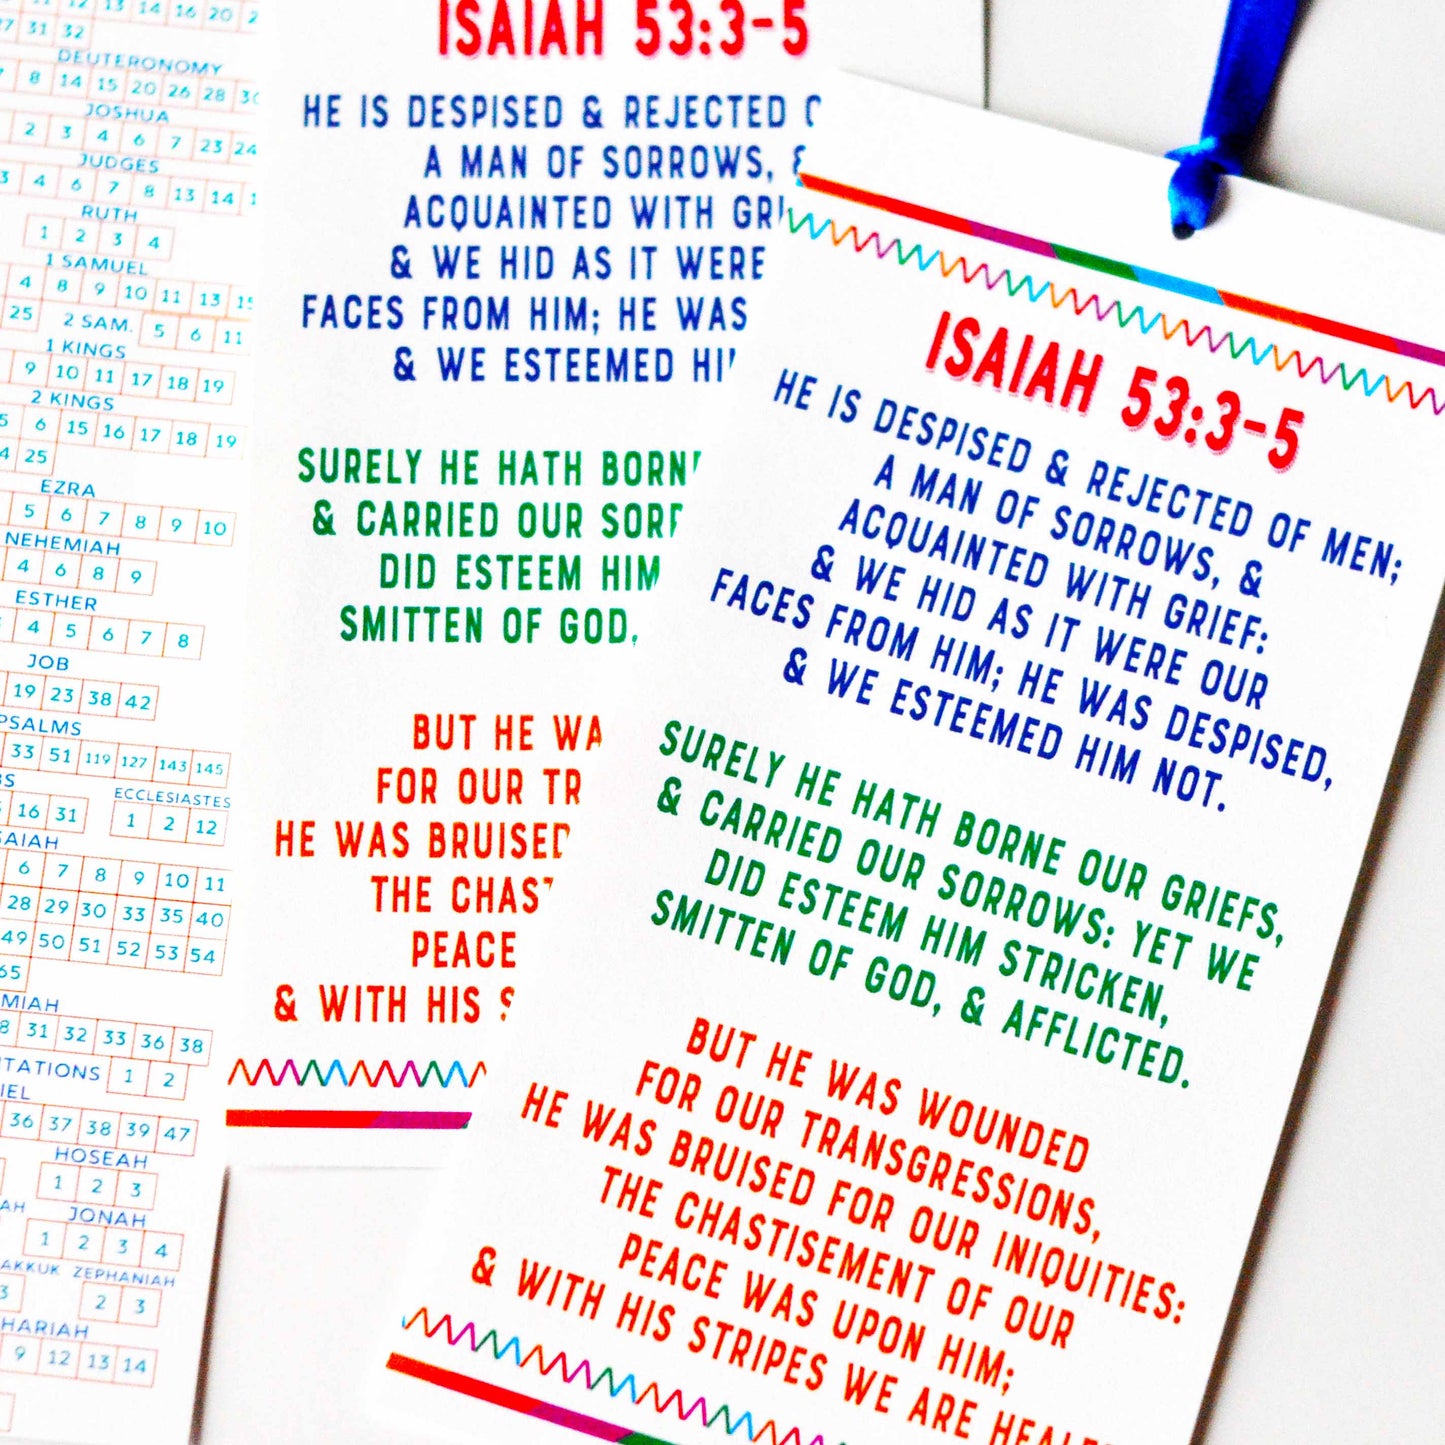 12 13 14 16 20
31 32
DEUTERONOMY
8 14 15 20 26 28
JOSHUA
2 3 4 6 7 23 24
JUDGES
3 4 6 7 8 13 14
RUTH
1 2 3 4
1 SAMUEL
4 8 9 10 11 13 15
25 2 SAM. 5 6 11
1 KINGS
9 10 11 17 18 19
2 KINGS
5 6 15 16 17 18 19
25
EZRA
5 6 7 8 9 10
NEHEMIAH
4 6 8 9
ESTHER
4 5 6 7 8
JOB
19 23 38 42
PSALMS
33 51 119 127 143 145
ECCLESIASTES
16 31 1 2 12
6 7 8 9 10 11
28 29 30 33 35 40
49 50 51 52 53 54
65
31 32 33 36 38
1 2
36 37 38 39 47
HOSEAH
1 2 3
JONAH
1 2 3 4
ZEPHANIAH
3 2 3
9 12 13 14
ISAIAH 53:3-5
HE IS DESPISED & REJECTED
A MAN OF SORROWS, &
ACQUAINTED WITH GRI
& WE HID AS IT WERE
FACES FROM HIM; HE WAS
& WE ESTEEMED HI
SURELY HE HATH BORN
& CARRIED OUR SOR
DID ESTEEM HIM
SMITTEN OF GOD,
BUT HE WA
FOR OUR TR
HE WAS BRUISED
THE CHAST
PEACE
& WITH HIS S
ISAIAH 53:3-5
HE IS DESPISED & REJECTED OF MEN;
A MAN OF SORROWS, &
ACQUAINTED WITH GRIEF:
& WE HID AS IT WERE OUR
FACES FROM HIM; HE WAS DESPISED,
& WE ESTEEMED HIM NOT.
SURELY HE HATH BORNE OUR GRIEFS,
& CARRIED OUR SORROWS: YET WE
DID ESTEEM HIM STRICKEN,
SMITTEN OF GOD, & AFFLICTED.
BUT HE WAS WOUNDED
FOR OUR TRANSGRESSIONS,
HE WAS BRUISED FOR OUR INIQUITIES:
THE CHASTISEMENT OF OUR
PEACE WAS UPON HIM;
& WITH HIS STRIPES WE ARE HEALE